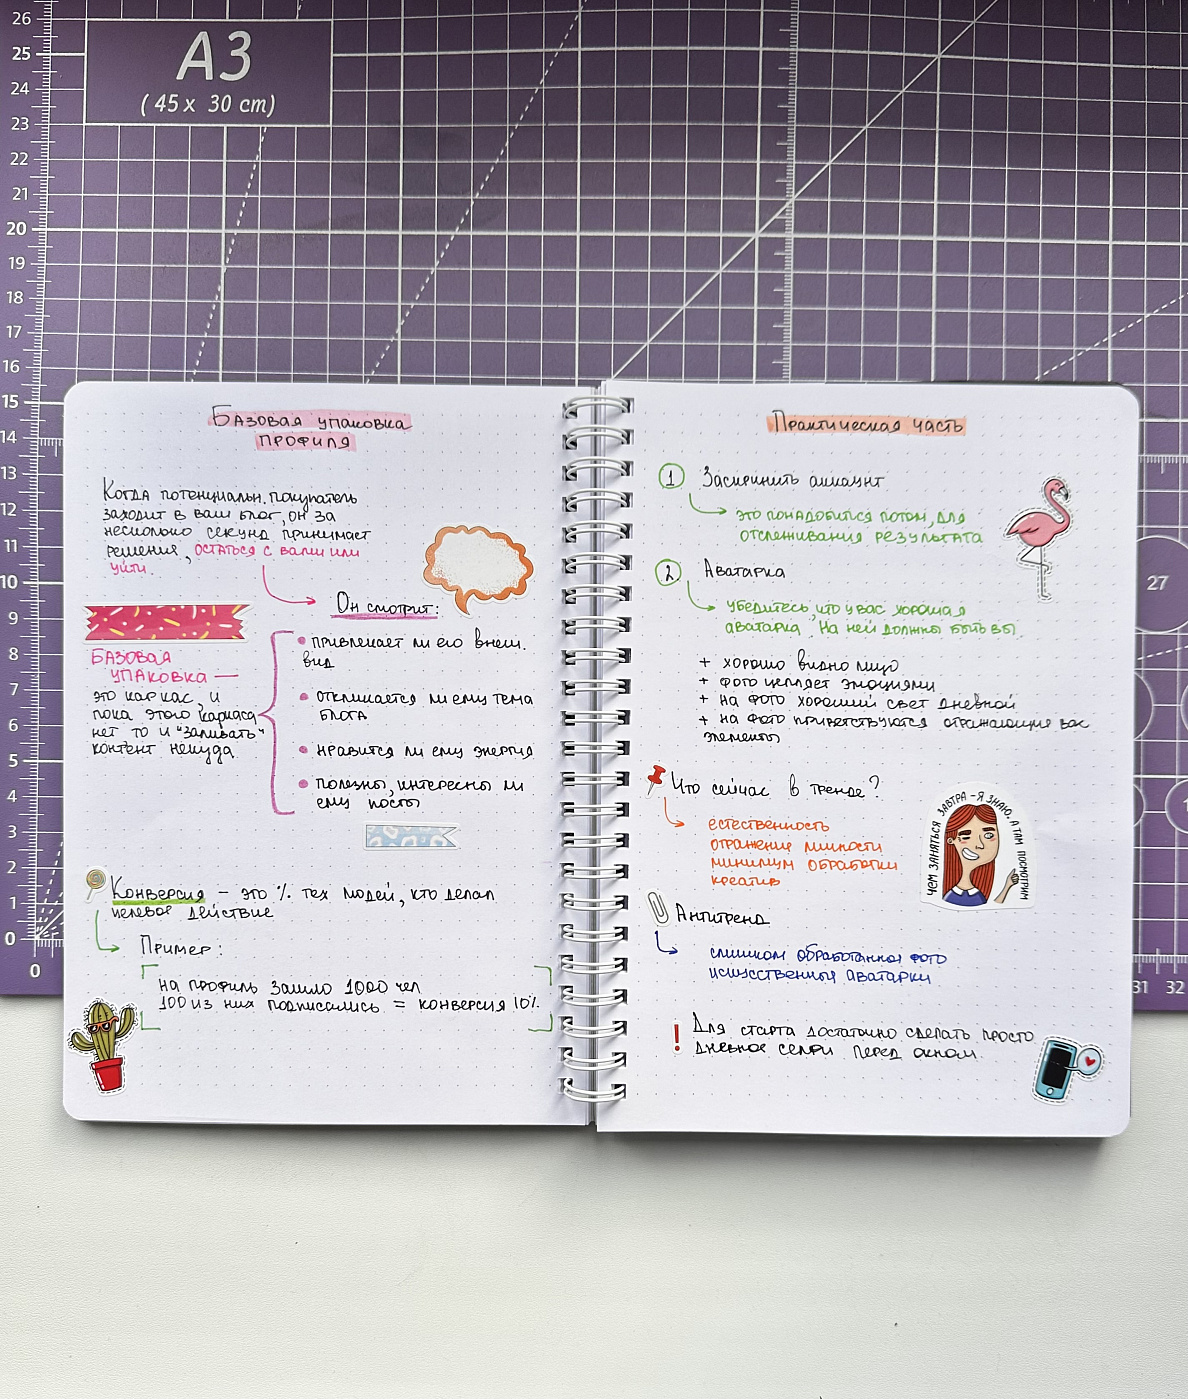 A3
(45 x 30 cm)
26
25
24
23
22
21
20
19
18
17
16
15
14
13
12
11
10
9
8
7
6
5
4
3
2
1
0
0
Базовая упаковка
профиля
Когда потенциальн. покупатель
заходит в ваш блог, он за
несколько секунд принимает
решения, остаться с вами или
уйти.
Он смотрит:
БАЗОВАЯ
УПАКОВКА —
это каркас, и
пока этого каркаса
нет то и "заливать"
контент некуда.
• привлекает ли его внеш.
вид
• откликается ли ему тема
блога
• нравится ли ему энергия
• полезны, интересны ли
ему посты
Конверсия – это % тех людей, кто делал
целевое действие
Пример:
На профиль зашло 1000 чел
100 из них подписались = конверсия 10%
Практическая часть
1 Заскринить аккаунт
это понадобится потом, для
отслеживания результата
2 Аватарка
убедитесь, что у вас хорошая
аватарка. На ней должны быть вы.
+ хорошо видно лицо
+ фото цепляет эмоциями
+ на фото хороший свет дневной
+ на фото приветствуются отражающие вас
элементы
Что сейчас в тренде?
естественность
отражение личности
минимум обработки
креатив
ЧЕМ ЗАНЯТЬСЯ ЗАВТРА - Я ЗНАЮ, А ТАМ ПОСМОТРИМ
Антитренд
слишком обработанное фото
искусственные аватарки
! Для старта достаточно сделать просто
дневное селфи перед окном.
27
31 32